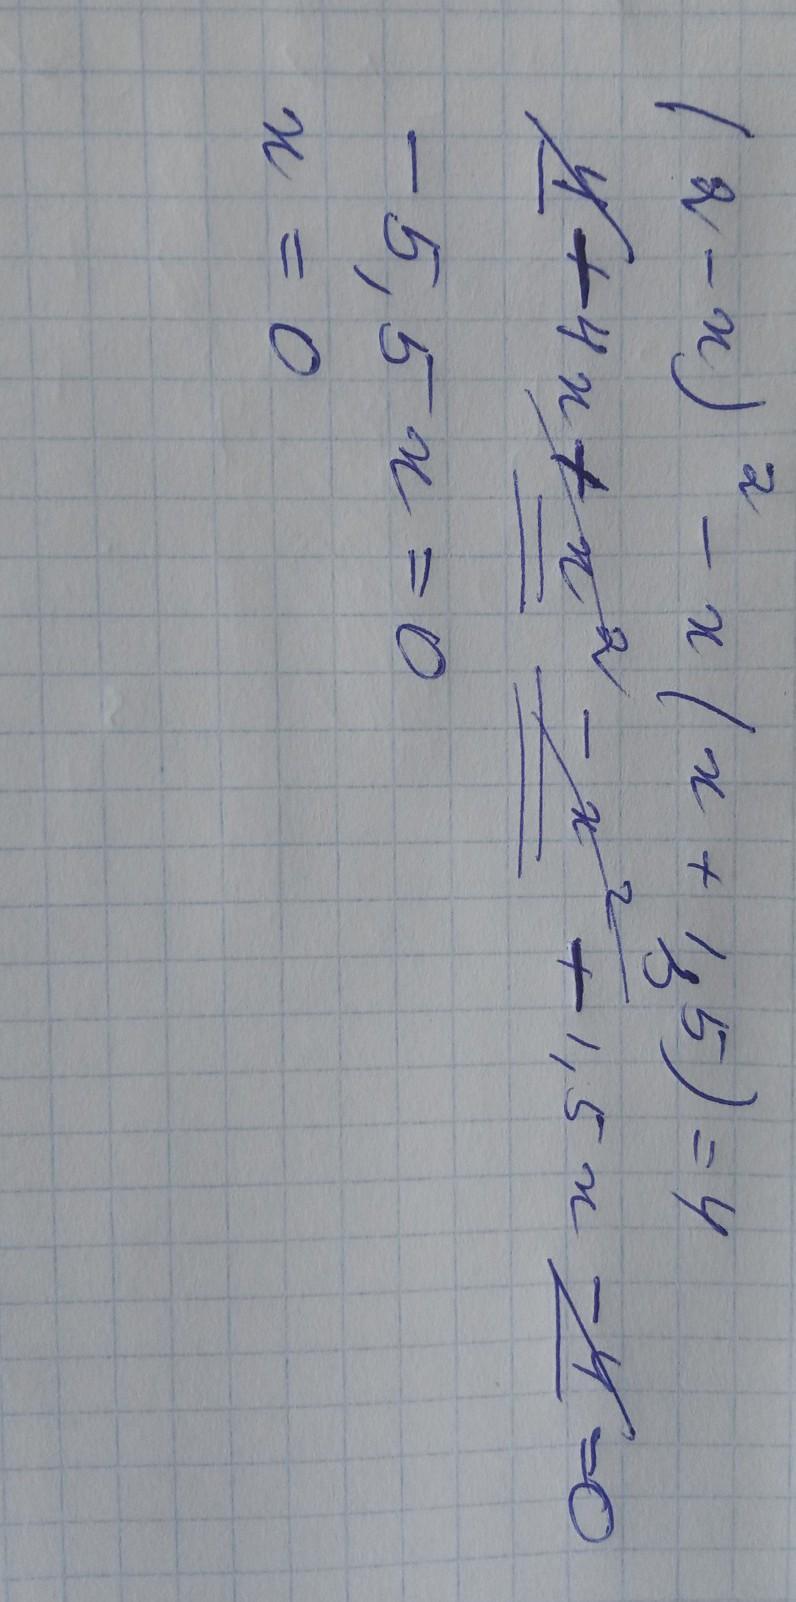 (2-x)² - x(x+1,5)=4
4+4x+x²-x²+1,5x-4=0
-5,5x=0
x=0